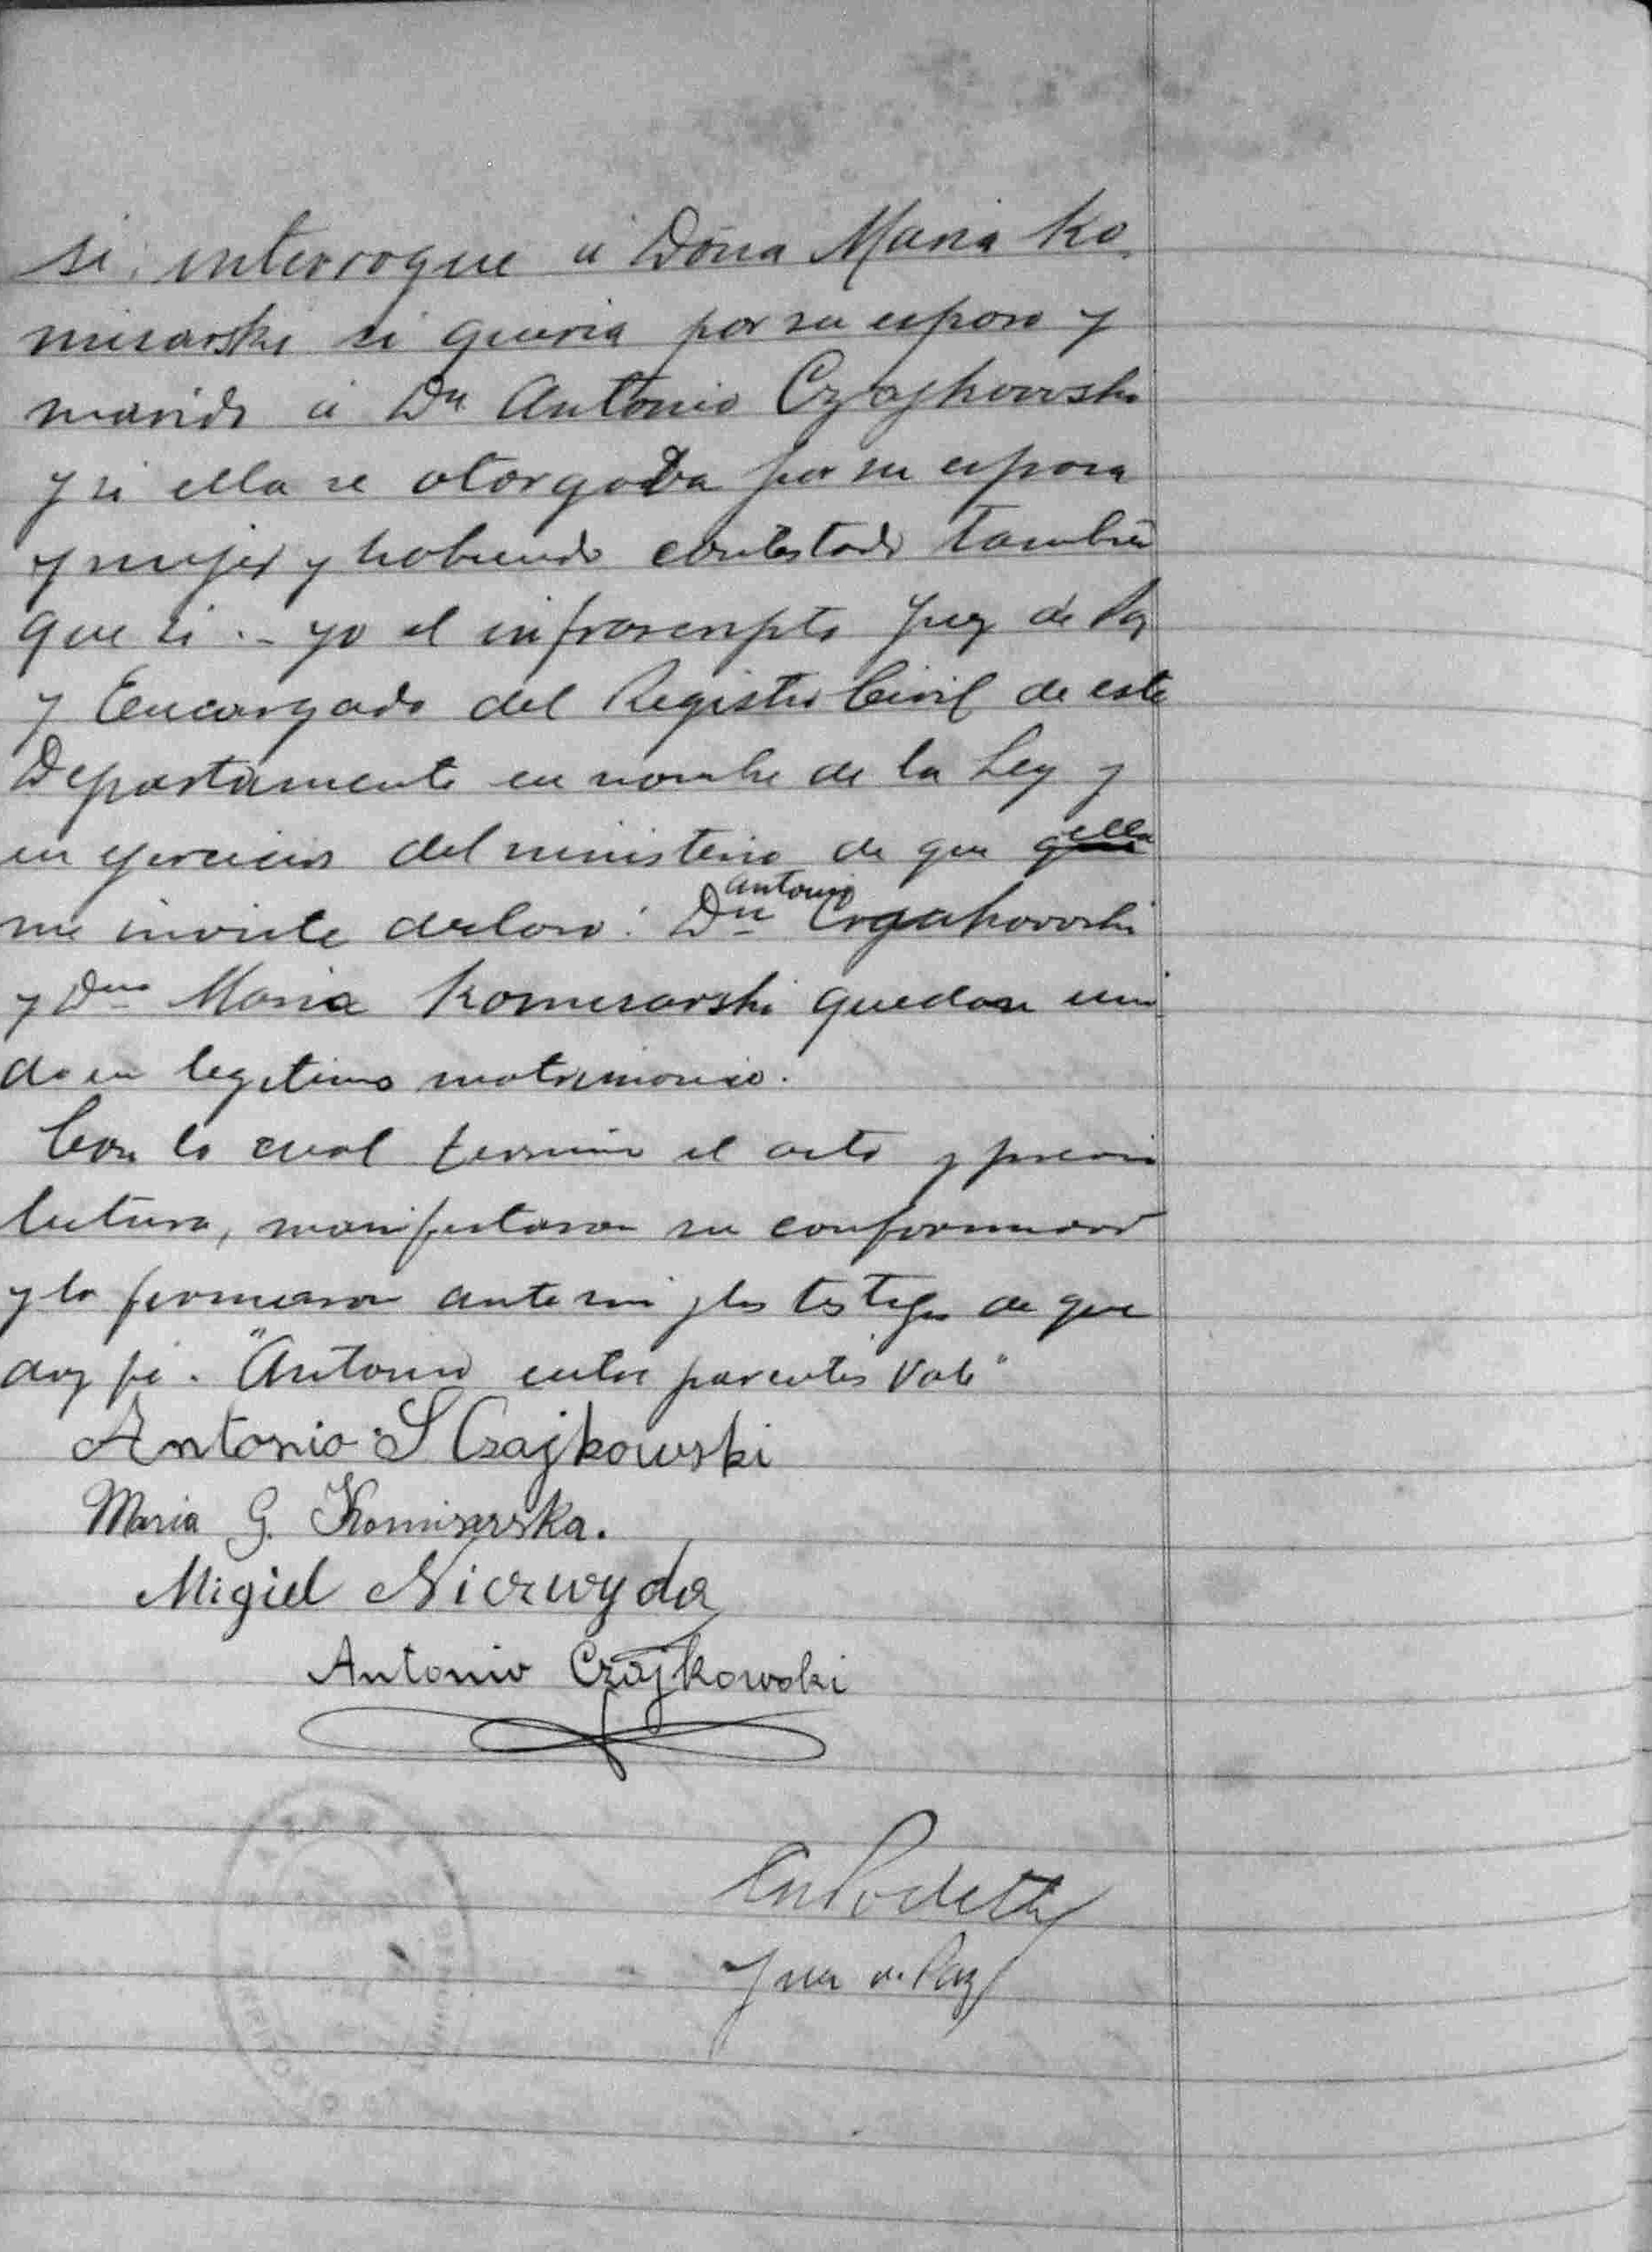 si, interrogue á Doña Maria Ko
misarski si queria por su esposo y
marido á Dn Antonio Czajkowski
y si ella se otorgaba por su esposa
y mujer y habiendo contestado tambien
que si. – yo el infrascripto Juez de Paz
y Encargado del Registro Civil de este
Departamento en nombre de la Ley y
en ejercicio del ministerio de que ella
me inviste declaro: Dn Antonio Czajkowski
y Dña Maria Komisarski quedan uni
do en legitimo matrimonio.
Con lo cual termino el acto y previa
lectura, manifestaron su conformidad
y la firmaron ante mi y los testigos de que
doy fé. "Antonio entre parentis Vale"
Antonio S Czajkowski
Maria G. Komisarska.
Migiel Niezwyda
Antonio Czajkowski
Podetti
Juez de Paz